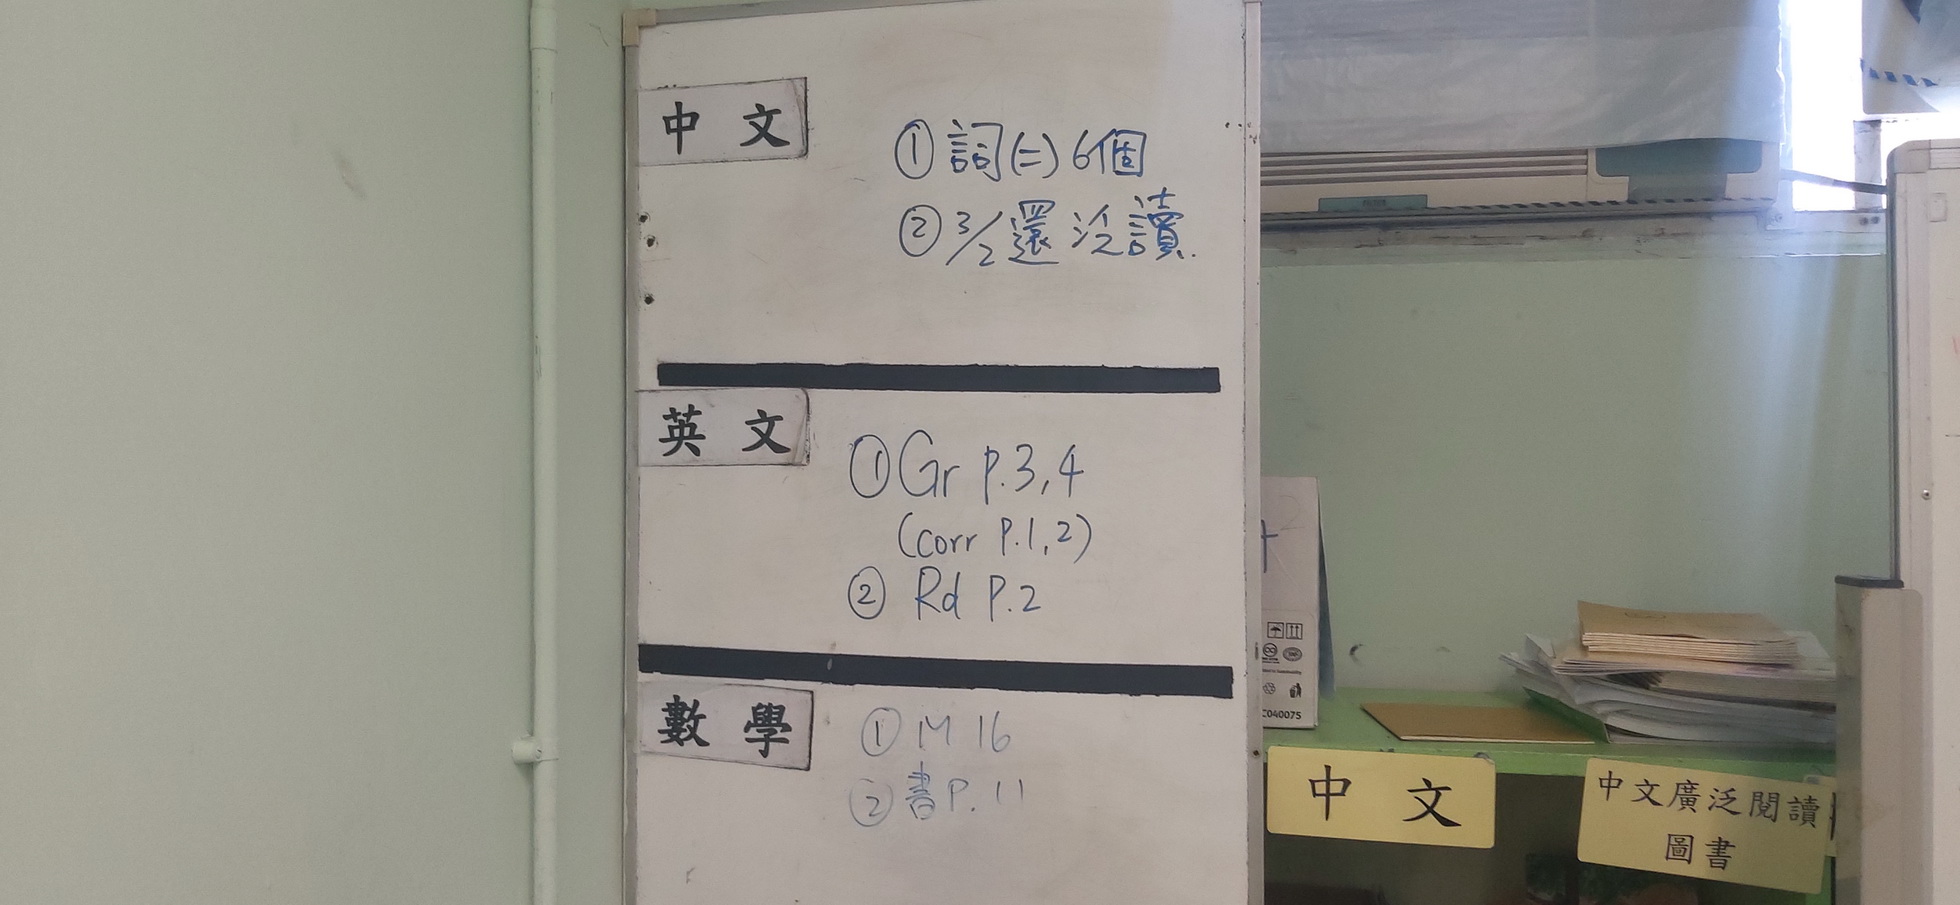 中文
① 詞(二) 6個
② 3/2 還泛讀.
英文
① Gr P.3,4
(corr P.1,2)
② Rd P.2
數學
① M 16
② 書P.11
C040075
中文
中文廣泛閱讀
圖書